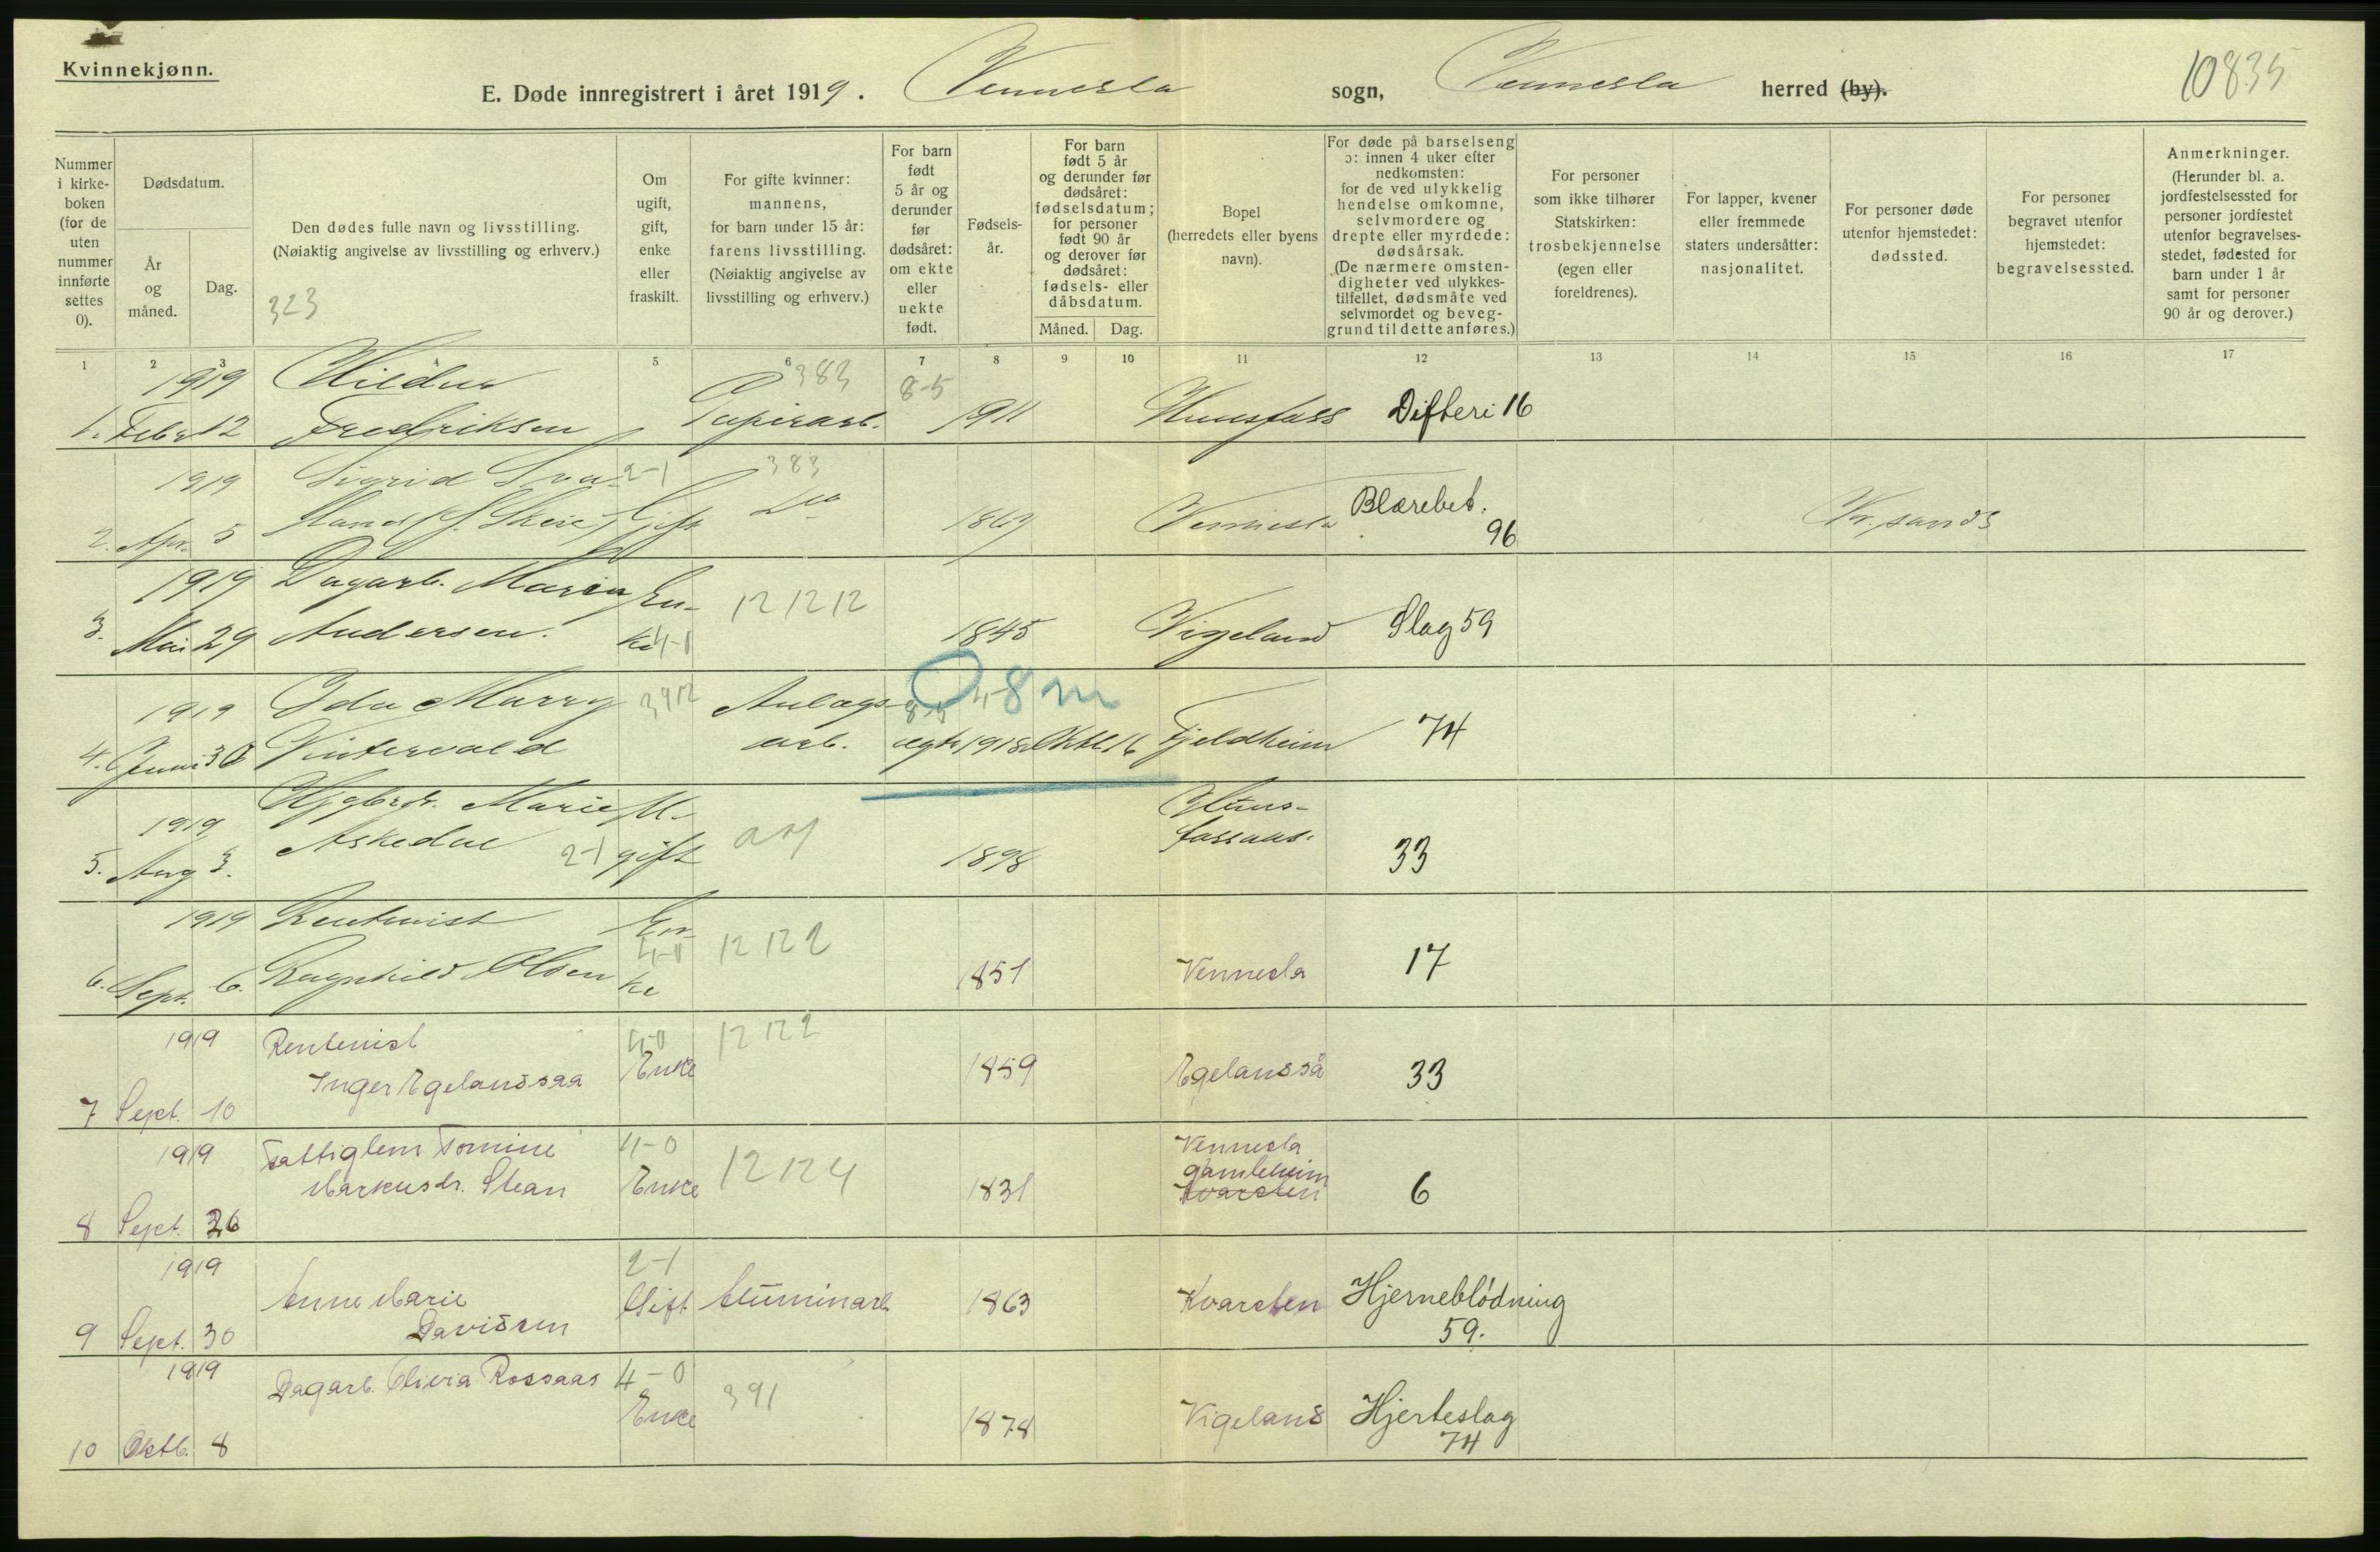 Kvinnekjønn.
E. Døde innregistrert i året 1919. Vennesla sogn, Vennesla herred (by).
10835
Nummer i kirke-boken (for de uten nummer innførte settes 0).
Dødsdatum.
År og måned.
Dag.
Den dødes fulle navn og livsstilling.
(Nøiaktig angivelse av livsstilling og erhverv.)
323
Om ugift, gift, enke eller fraskilt.
For gifte kvinner: mannens, for barn under 15 år: farens livsstilling. (Nøiaktig angivelse av livsstilling og erhverv.)
For barn født 5 år og derunder før dødsåret: om ekte eller uekte født.
Fødsels-år.
For barn født 5 år og derunder før dødsåret: fødselsdatum; for personer født 90 år og derover før dødsåret: fødsels- eller dåbsdatum.
Måned. Dag.
Bopel (herredets eller byens navn).
For døde på barselseng ɔ: innen 4 uker efter nedkomsten: for de ved ulykkelig hendelse omkomne, selvmordere og drepte eller myrdede: dødsårsak. (De nærmere omsten-digheter ved ulykkes-tilfellet, dødsmåte ved selvmordet og beveg-grund til dette anføres.)
For personer som ikke tilhører Statskirken: trosbekjennelse (egen eller foreldrenes).
For lapper, kvener eller fremmede staters undersåtter: nasjonalitet.
For personer døde utenfor hjemstedet: dødssted.
For personer begravet utenfor hjemstedet: begravelsessted.
Anmerkninger. (Herunder bl. a. jordfestelsessted for personer jordfestet utenfor begravelses-stedet, fødested for barn under 1 år samt for personer 90 år og derover.)
1 2 3 4 5 6 7 8 9 10 11 12 13 14 15 16 17
1919 Hildur 383 8-5
1. Febr. 12 Fredriksen Papirarb. 1911 Hunsfoss Difteri 16
1919 Sigrid 2-1 383
2. Apr. 5 Gift Do 1867 Vennesla Blærebet. 96 Kr.sands
1919 Dagarb. Maria En- 12 12 12
3. Mai 29 Andersen. ke 4-0 1845 Vigeland Slag 59
1919 Ida Marry 3912 Anlægs- 8-5 0 8 m
4. Juni 30 Vintervold arb. ægte 1918 Oktb. 16 Fjeldheim 74
1919 Marie Huns-
5. Aug 3. Askedal 2-1 gift 1898 fossaas. 33
1919 Rentenist En- 4-0 12 12 2
6. Sept. 6. Ragnhild Olsen ke 1851 Vennesla 17
1919 Rentenist 4-0 12 12 2
7 Sept. 10 Inger Egelandsaa Enke 1859 Egelandså 33
1919 Fattiglem Tomine 4-0 12 12 4 Vennesla
Markusdr. Stean Enke 1831 gamleheim
8 Sept. 26 Kvarsten 6
1919 2-1
Anne Marie Gift Aluminarb 1863 Kvarsten Hjerneblödning
9 Sept. 30 Davidsen 59.
1919 Dagarb. Olivia Rossaas 4-0 391
Enke 1878 Vigeland Hjerteslag
10 Oktb. 8 74